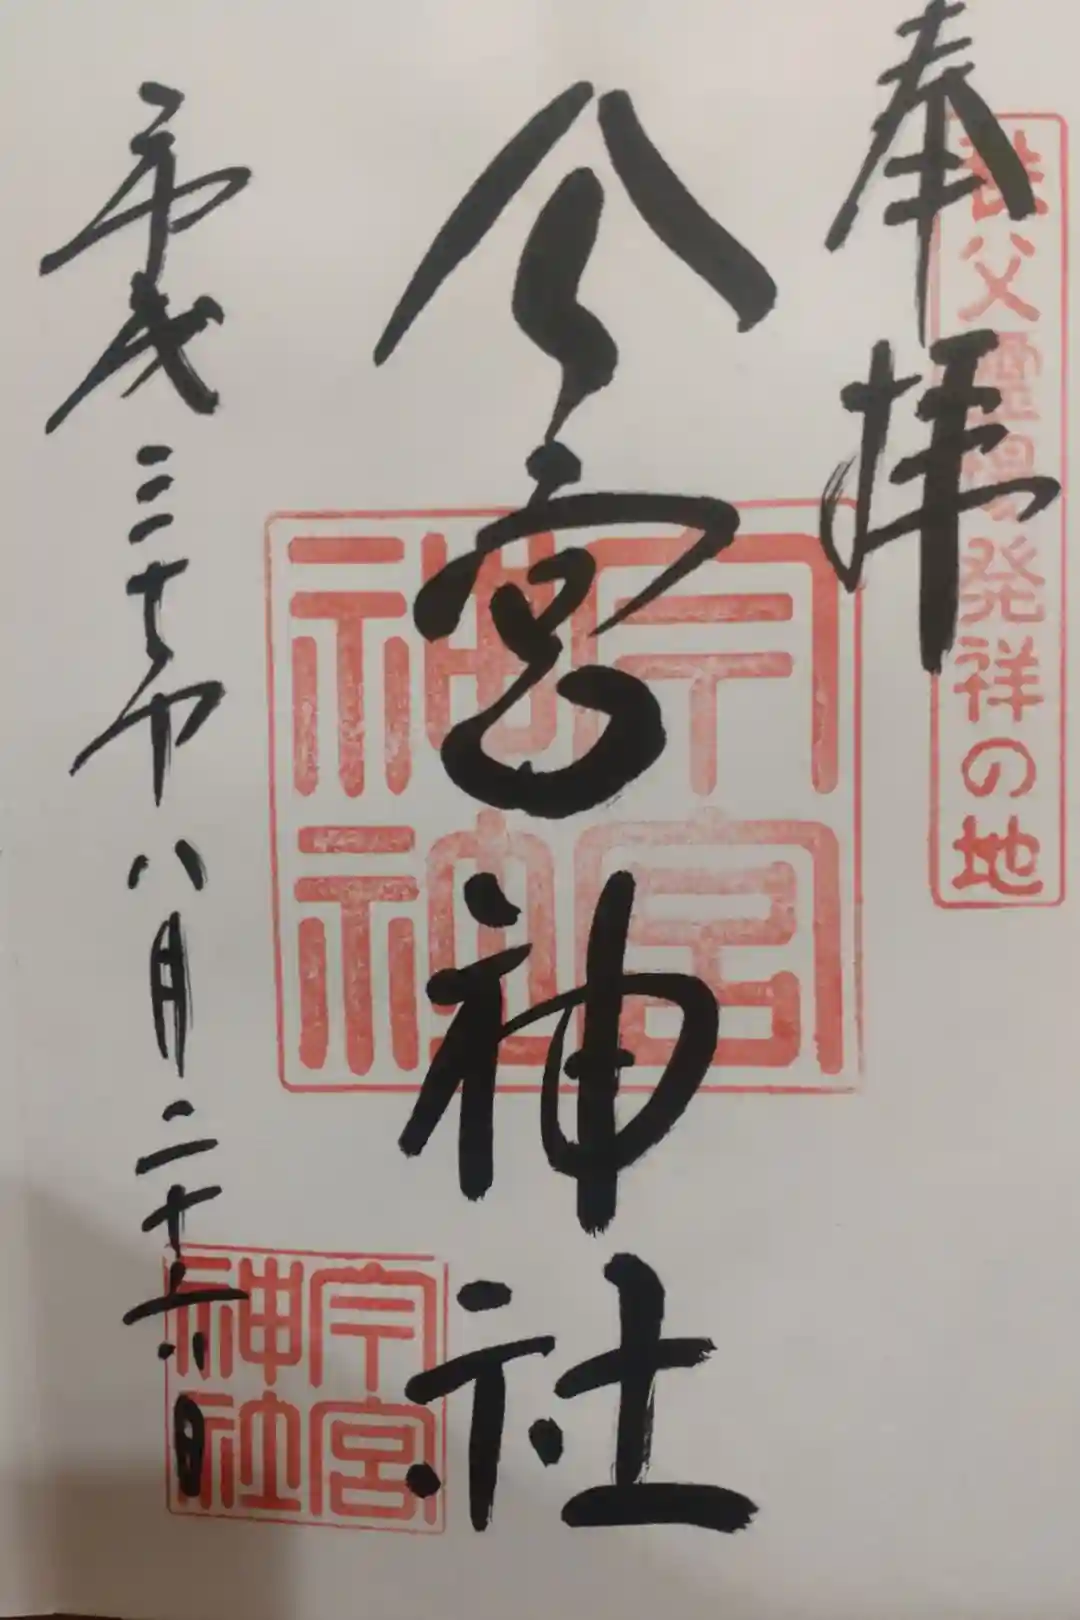 奉拝
秩父霊場発祥の地
今宮神社
今宮神社
平成三十年八月二十六日
今宮神社